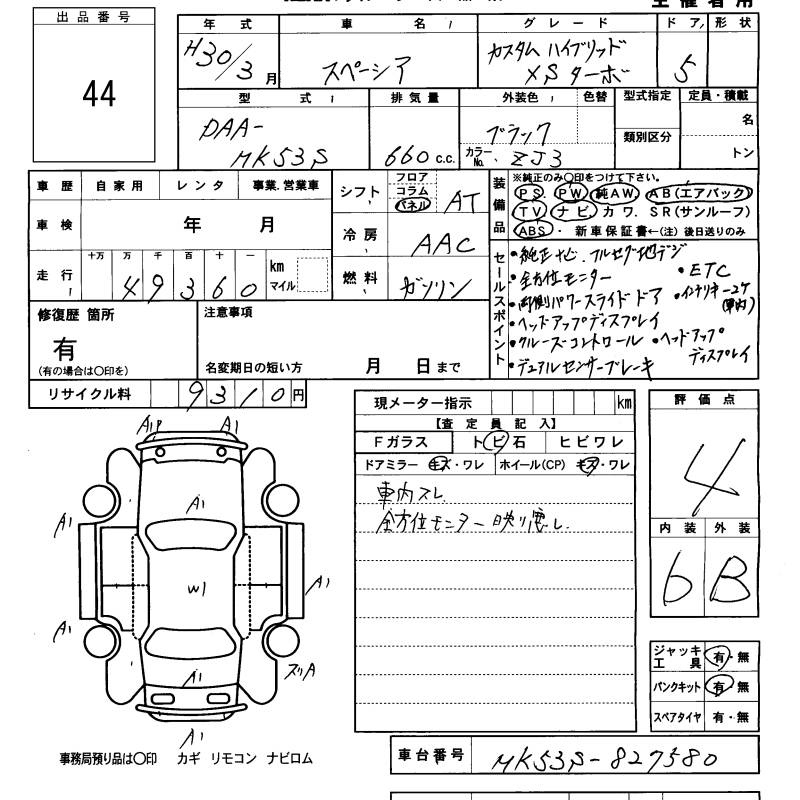 出品番号
44
年式 車名 グレード ドア 形状
H30/3月 スペーシア カスタム ハイブリッド XSターボ 5
型式 排気量 外装色 色替 型式指定 定員・積載
DAA-MK53S 660c.c. ブラック カラーNo. ZJ3 類別区分 名 トン
車歴 自家用 レンタ 事業.営業車
車検 年 月
走行 十万 万 千 百 十 一 km マイル
49360
シフト フロア コラム パネル AT
冷房 AAC
燃料 ガソリン
装備品 ※純正のみ〇印をつけて下さい。
PS PW 純AW AB(エアバック)
TV ナビ カワ. SR(サンルーフ)
ABS ・ 新車保証書←(注) 後日送りのみ
セールスポイント
・純正ナビ、フルセグ地デジ
・全方位モニター ・ETC
・両側パワースライドドア
・ヘッドアップディスプレイ
・クルーズコントロール ・ヘッドアップディスプレイ
・デュアルセンサーブレーキ
修復歴 箇所
有
(有の場合は〇印を)
注意事項
名変期日の短い方 月 日まで
リサイクル料 9310円
現メーター指示 km
【査定員記入】
Fガラス トビ石 ヒビワレ
ドアミラー キズ・ワレ ホイール(CP) キズ・ワレ
車内スレ
全方位モニター映り悪し
評価点
4
内装 外装
6 B
ジャッキ工具 有・無
パンクキット 有・無
スペアタイヤ 有・無
A1P A1
A1
A1
W1
A1
A1
スリA
A1
A1
事務局預り品は〇印 カギ リモコン ナビロム
車台番号 MK53S-827580